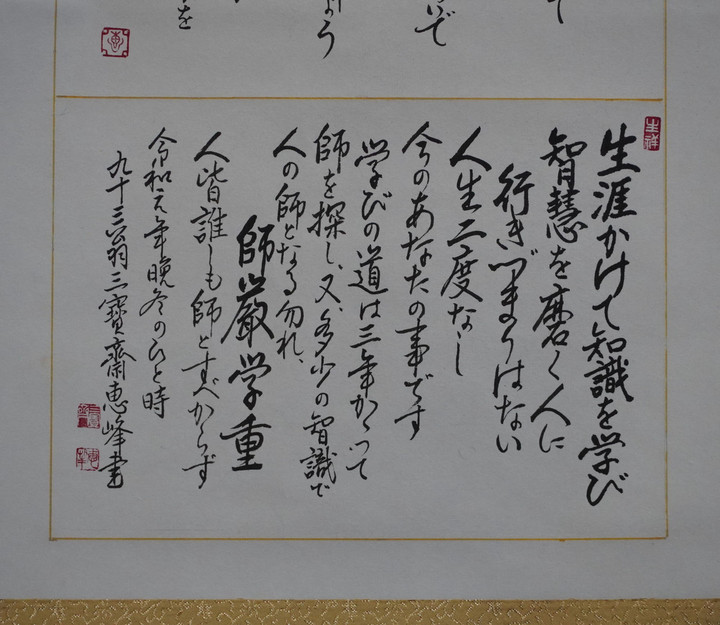 て
で
よう
を
生涯かけて知識を学び
智慧を磨く人に
行きづまりはない
人生二度なし
今のあなたの事です
学びの道は三年かゝって
師を探し、又、多少の智識で
人の師となる勿れ、
師厳学重
人皆誰しも師とすべからず
令和元年晩冬のひと時
九十三翁三寶齋恵峰書